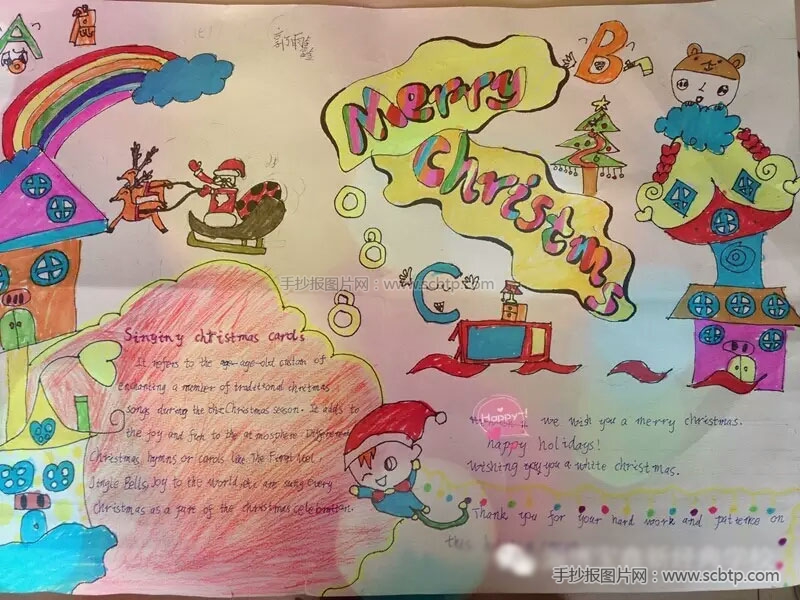 A
B
Merry
Christms
手抄报图片网：www.scbtp.com
C
Singiny christmas cards
It refers to the age-age-old custom of
enchanting a member of traditional christmas
songs during the the Christmas season. It adds to
the joy and fun to the at mosphere. Different
Christmas hymns or carols like The First Noel
Jingle Bells, Joy to the world, etc are sung every
Christmas as a part of the christmas celebration.
Happy!
we wish you a merry christmas.
happy holidays!
Wishing you you a white christmas.
Thank you for your hard work and patience on
this
手抄报图片网：www.scbtp.com